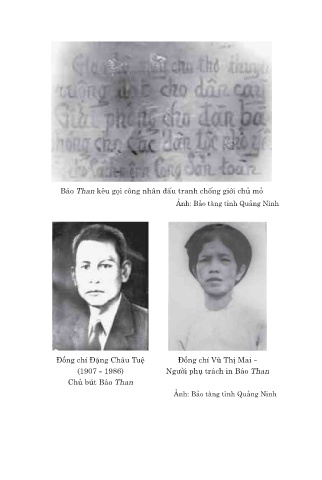 Giao nhà máy cho thợ thuyền
ruộng đất cho dân cày
Giải phóng cho đàn bà
cho các dân tộc
Báo Than kêu gọi công nhân đấu tranh chống giới chủ mỏ
Ảnh: Bảo tàng tỉnh Quảng Ninh
Đồng chí Đặng Châu Tuệ
(1907 - 1986)
Chủ bút Báo Than
Đồng chí Vũ Thị Mai -
Người phụ trách in Báo Than
Ảnh: Bảo tàng tỉnh Quảng Ninh